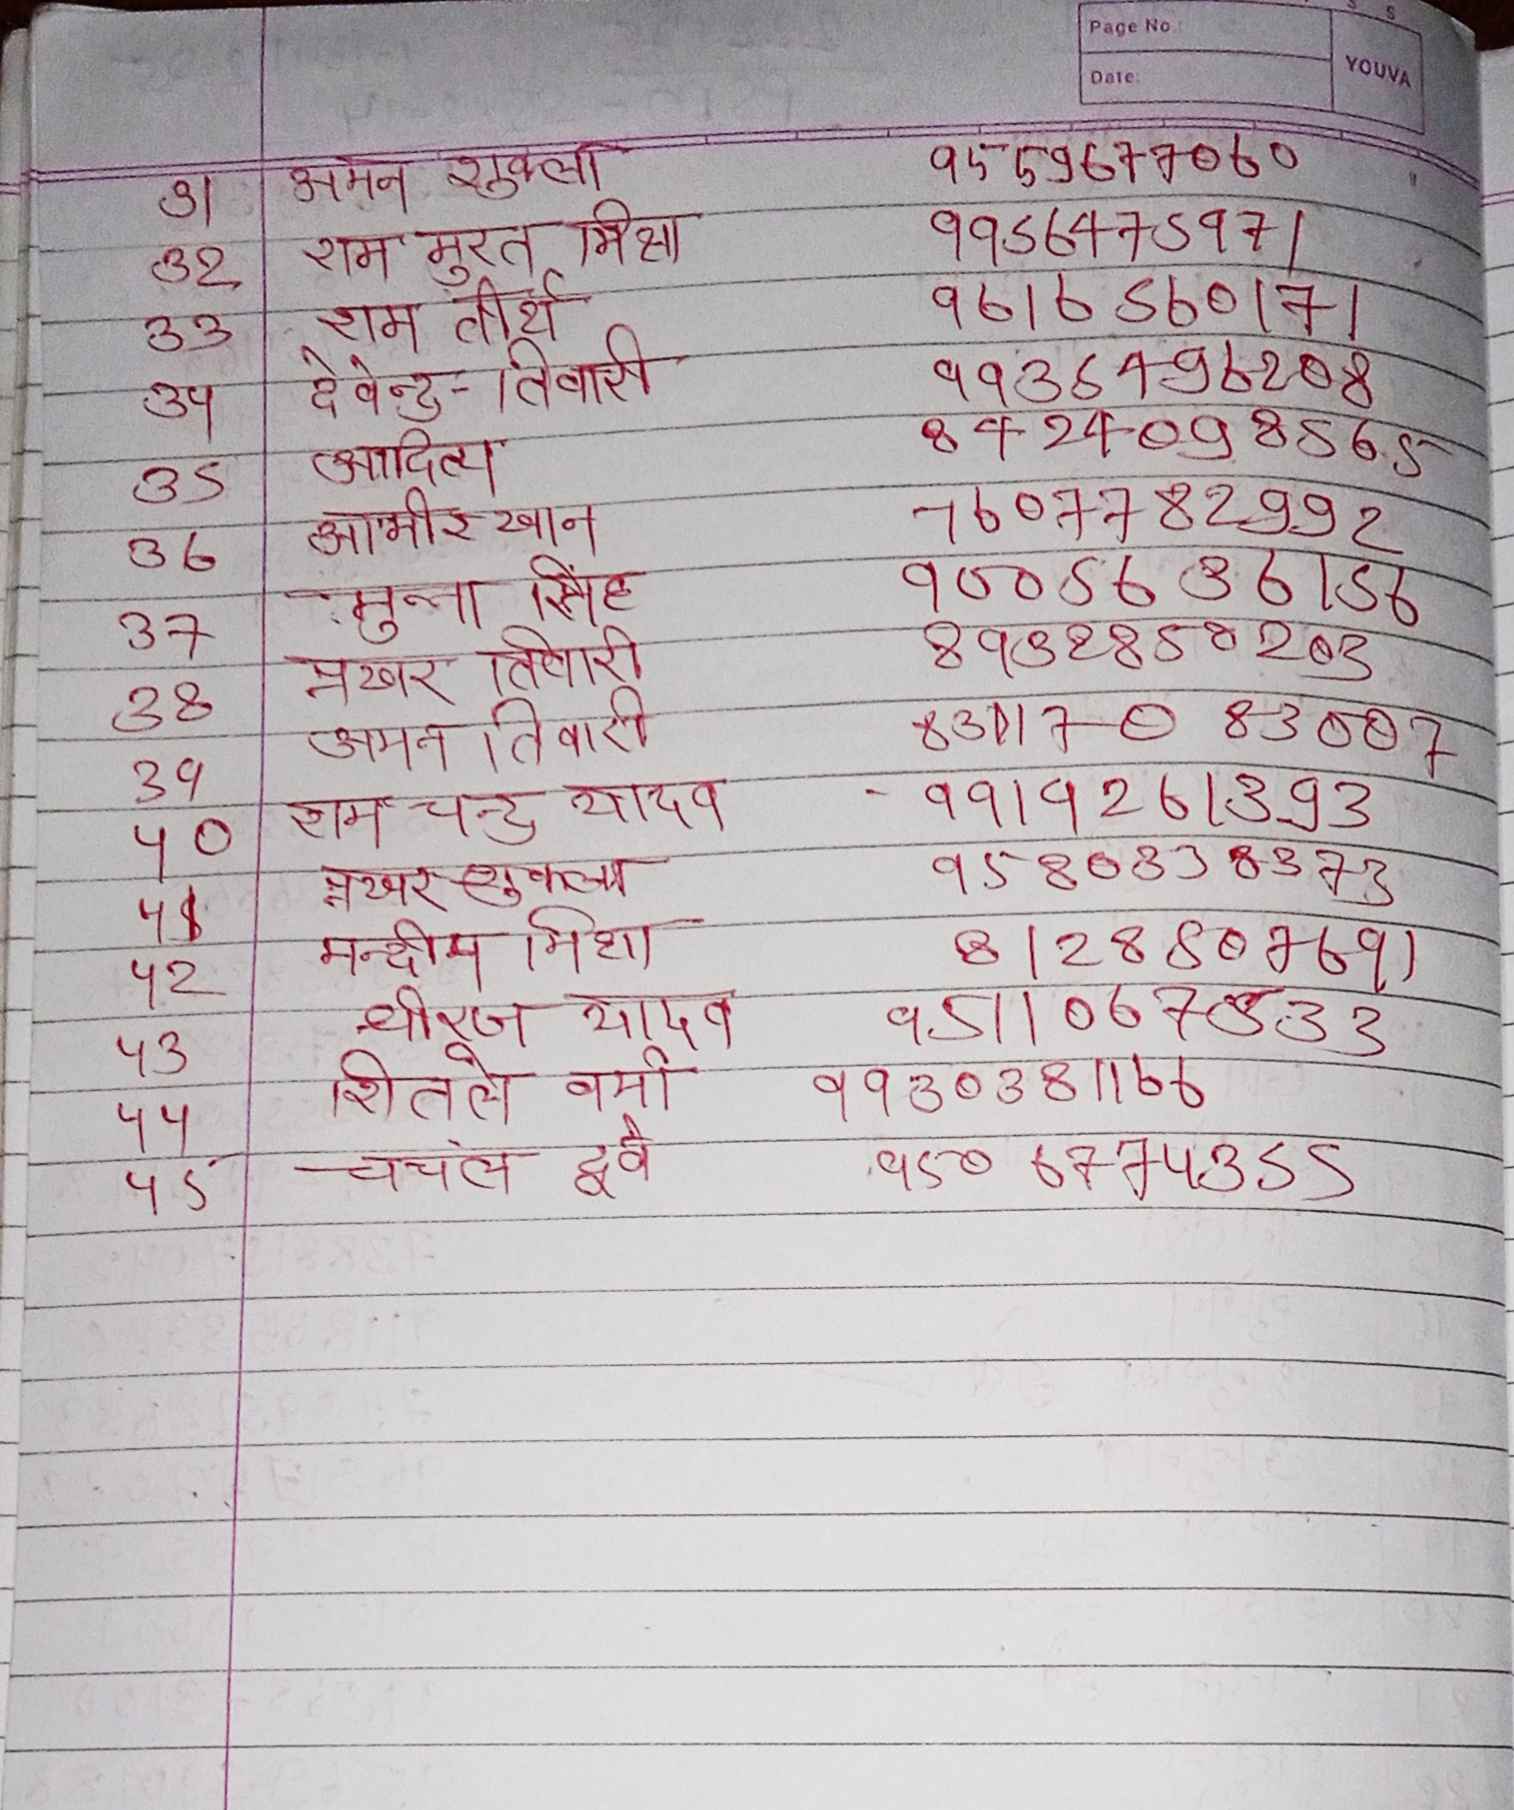 Page No.
Date:
YOUVA
31 अमन शुक्ला 9559677060
32 राम मुरत मिश्रा 9956475971
33 राम तीर्थ 9616560171
34 देवेन्द्र - तिवारी 9936496208
35 आदित्य 8424098565
36 आमीर खान 7607782992
37 मुन्ना सिंह 9005636156
38 प्रखर तिवारी 8932850203
39 अमन तिवारी
40 राम चन्द्र यादव - 9919261393
41 प्रखर शुक्ला 9580838373
42 मन्दीप मिश्रा
43 धीरज यादव
44 शितले वर्मा 9930381166
45 चचंल दूवे 9506774355